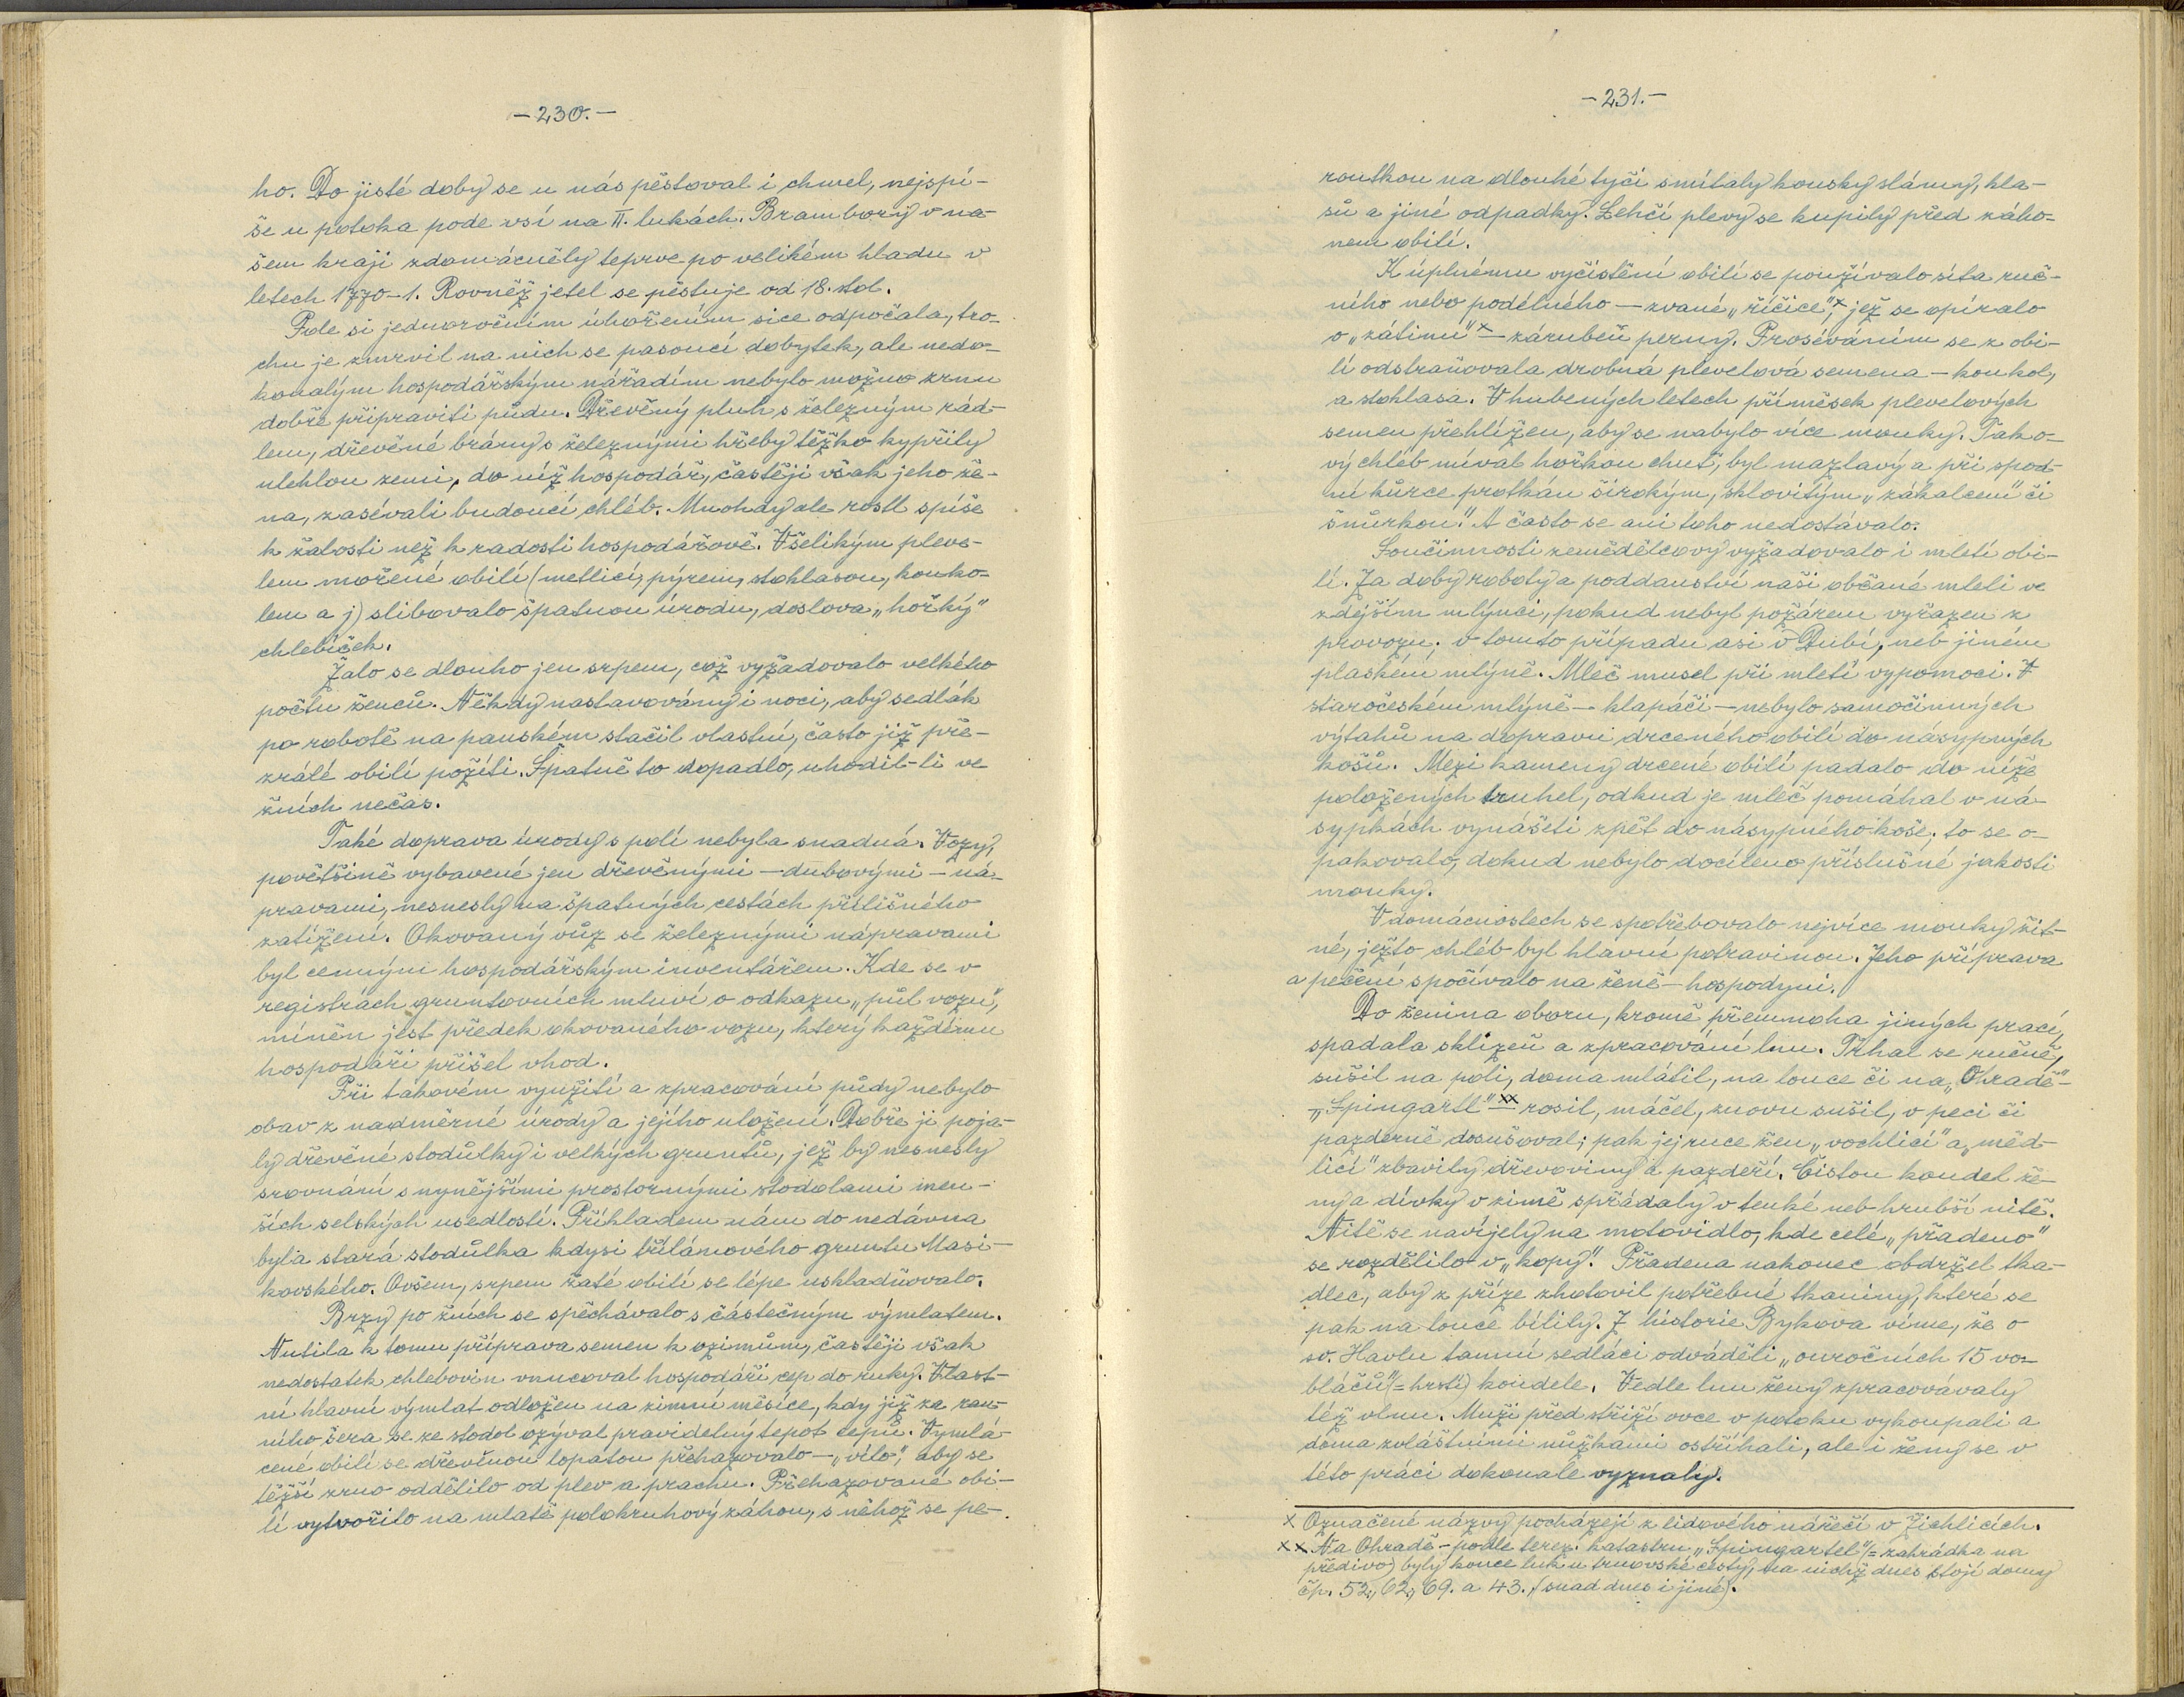 -230.-
ho. Do jisté doby se u nás pěstoval i chmel, nejspí-
še u potoka pode vsí na II. lukách. Brambory v na-
šem kraji zdomácněly teprve po velikém hladu v
letech 1770-1. Rovněž jetel se pěstuje od 18. stol.
Pole si jednoročním úhořením sice odpočala, tro-
chu je zmrvil na nich se pasoucí dobytek, ale nedo-
konalým hospodářským nářadím nebylo možno zrnu
dobře připraviti půdu. Dřevěný pluh s železným rád-
lem, dřevěné brány s železnými hřeby těžko kypřily
ulehlou zemi, do níž hospodář, častěji však jeho že-
na, zasévali budoucí chléb. Mnohdy ale rostl spíše
k žalosti než k radosti hospodářově. Všelikým pleve-
lem mořené obilí (metlicí, pýrem, stohlasou, kouko-
lem a j) slibovalo špatnou úrodu, doslova „hořký"
chlebíček.
Žalo se dlouho jen srpem, což vyžadovalo velkého
počtu ženců. Někdy nastavovány i noci, aby sedlák
po robotě na panském stačil vlastní, často již pře-
zrálé obilí požíti. Špatně to dopadlo, uhodil-li ve
žních nečas.
Také doprava úrody s polí nebyla snadná. Vozy,
povětšině vybavené jen dřevěnými - dubovými - ná-
pravami, nesnesly na špatných cestách přílišného
zatížení. Okovaný vůz se železnými nápravami
byl cenným hospodářským inventářem. Kde se v
registrách gruntovních mluví o odkazu „půl vozu",
míněn jest předek okovaného vozu, který každému
hospodáři přišel vhod.
Při takovém využití a zpracování půdy nebylo
obav z nadměrné úrody a jejího uložení. Dobře ji poja-
ly dřevěné stodůlky i velkých gruntů, jež by nesnesly
srovnání s nynějšími prostornými stodolami men-
ších selských usedlostí. Příkladem nám do nedávna
byla stará stodůlka kdysi třílánového gruntu Masi-
kovského. Ovšem, srpem žaté obilí se lépe uskladňovalo.
Brzy po žních se spěchávalo s částečným výmlatem.
Nutila k tomu příprava semen k ozimům, častěji však
nedostatek chlebovin vnucoval hospodáři cep do ruky. Vlast-
ní hlavní výmlat odložen na zimní měsíce, kdy již za ran-
ního šera se ze stodol ozýval pravidelný tepot cepů. Vymlá-
cené obilí se dřevěnou lopatou přehazovalo - „vílo", aby se
těžší zrno oddělilo od plev a prachu. Přehazované obi-
lí vytvořilo na mlatě polokruhový záhon, s něhož se pe-
-231.-
routkou na dlouhé tyči smítaly kousky slámy, kla-
sů a jiné odpadky. Lehčí plevy se kupily před záho-
nem obilí.
K úplnému vyčistění obilí se používalo síta ruč-
ního nebo podélného - zvané „říčice",x jež se opíralo
o „zátinu"x - zárubeň perny. Proséváním se z obi-
lí odstraňovala drobná plevelová semena - koukol,
a stohlasa. V hubených letech přímёsek plevelových
semen přehlížen, aby se nabylo více mouky. Tako-
vý chléb míval hořkou chuť, byl mazlavý a při spod-
ní kůrce protkán širokým, sklovitým „zákalcem" či
šnůrkou." A často se ani toho nedostávalo.
Součinnosti zemědělcovy vyžadovalo i mletí obi-
lí. Za doby roboty a poddanství naši občané mleli ve
zdejším mlýnci, pokud nebyl požárem vyřazen z
provozu; v tomto případu asi v Dubí, neb jiném
plaském mlýně. Mleč musel při mletí vypomoci. V
staročeském mlýně - klapáči - nebylo samočinných
výtahů na dopravu drceného obilí do násypných
košů. Mezi kameny drcené obilí padalo do níže
položených truhel, odkud je mleč pomáhal v ná-
sypkách vynášeti zpět do násypného koše; to se o-
pakovalo, dokud nebylo docíleno příslušné jakosti
mouky.
V domácnostech se spotřebovalo nejvíce mouky žit-
né, ježto chléb byl hlavní potravinou. Jeho příprava
a pečení spočívalo na ženě - hospodyni.
Do ženina oboru, kromě přemnoha jiných prací,
spadala sklizeň a zpracování lnu. Trhal se ručně,
sušil na poli, doma mlátil, na louce či na „Ohradě"-
„Špingartl"xx - rosil, máčel, znovu sušil, v peci či
pazderně dosušoval; pak jej ruce žen „vochlicí" a „měd-
licí" zbavily dřevoviny a pazdeří. Čistou koudel že-
ny a dívky v zimě spřádaly v tenké neb hrubší nitě.
Nitě se navíjely na motovidlo, kde celé „předeno"
se rozdělilo v „kopy". Předena nakonec obdržel tka-
dlec, aby z příze zhotovil potřebné tkaniny, které se
pak na louce bílily. Z historie Bykova víme, že o
sv. Havlu tamní sedláci odváděli „ouročních 15 vo-
bláčů" (= hrstí) koudele. Vedle lnu ženy zpracovávaly
též vlnu. Muži před střiží ovce v potoku vykoupali a
doma zvláštními nůžkami ostříhali, ale i ženy se v
této práci dokonale vyznaly.
x Označené názvy pocházejí z lidového nářečí v Žichlicích.
xx Na Ohradě - podle terez. katastru „Špingartel" (= zahrádka na
předivo) byly konce luk u trnovské cesty, na nichž dnes stojí domy
čp. 52, 62, 69. a 43. (snad dnes i jiné).